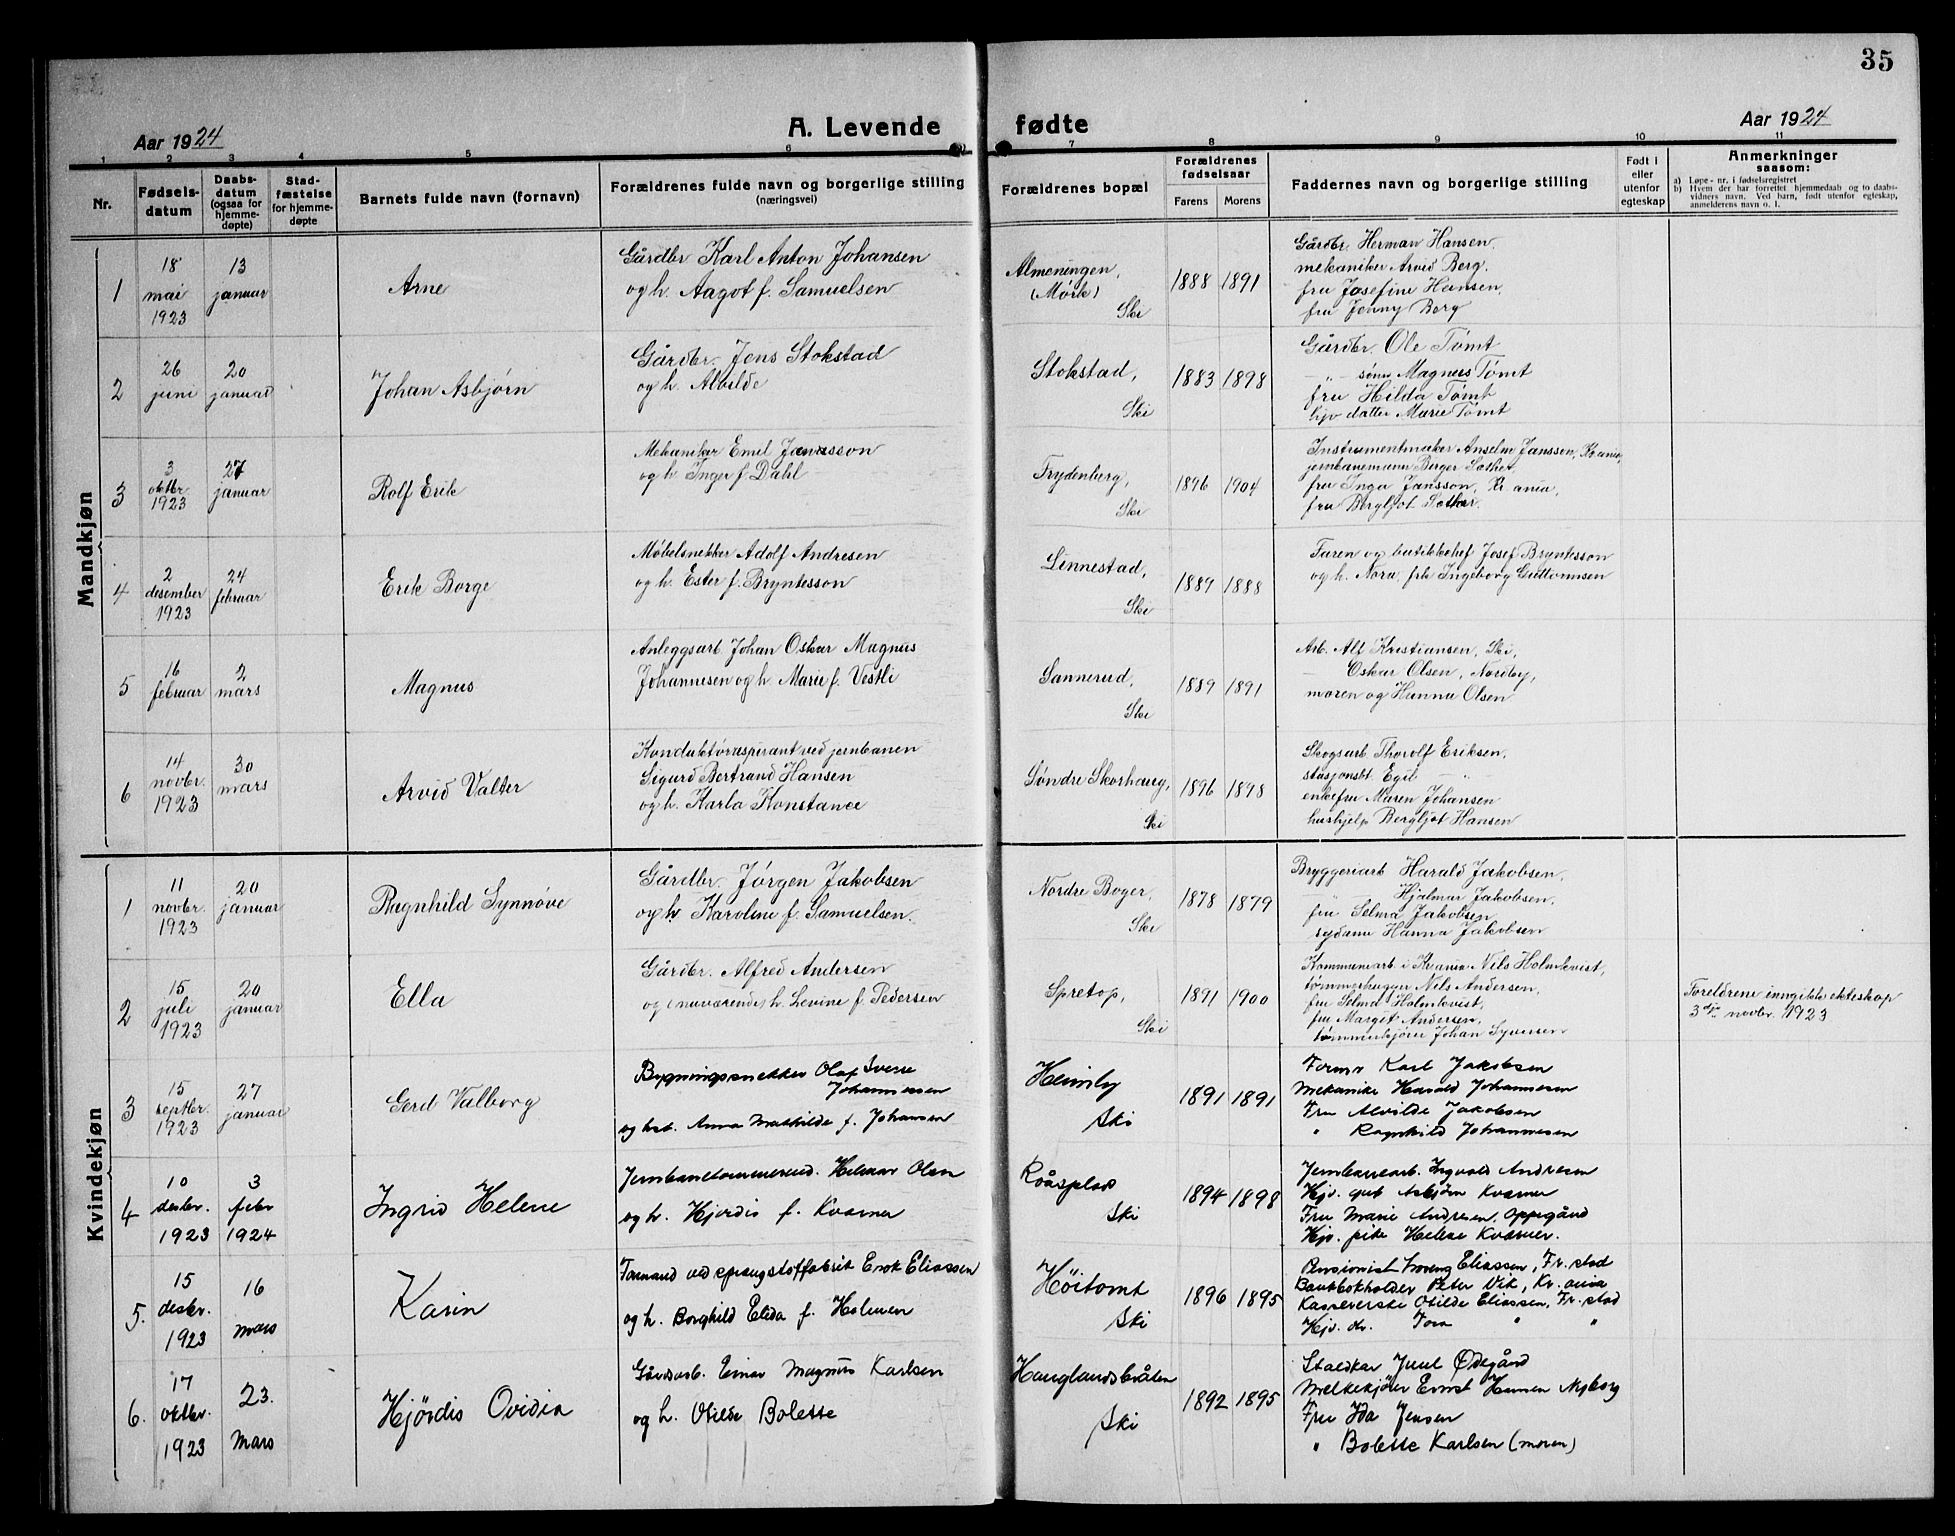 35
Aar 1924
A. Levende fødte
Aar 1924
1 2 3 4 5 6 7 8 9 10 11
Nr.
Fødsels-
datum
Daabs-
datum
(ogsaa for
hjemme-
døpte)
Stad-
fæstelse
for hjemme-
døpte
Barnets fulde navn (fornavn)
Forældrenes fulde navn og borgerlige stilling
(næringsvei)
Forældrenes bopæl
Forældrenes
fødselsaar
Farens Morens
Faddernes navn og borgerlige stilling
Født i
eller
utenfor
egteskap
Anmerkninger
saasom:
a) Løpe-nr. i fødselsregistret
b) Hvem der har forrettet hjemmedaab og to daabs-
vidners navn. Ved barn, født utenfor egteskap,
anmelderens navn o. l.
Mandkjøn
1
18
mai
1923
13
januar
Arne
Gårdbr. Karl Anton Johansen
og h. Aagot f. Samuelsen
Almeningen,
(Mørk)
Ski
1888 1891
Gårdbr. Herman Hansen,
mekaniker Arvid Berg,
fru Josefine Hansen,
fru Jenny Berg
2
26
juni
20
januar
Johan Asbjørn
Gårdbr. Jens Stokstad
og h. Alvilde
Stokstad,
Ski
1883 1898
Gårdbr. Ole Tømt
— „ — sønn Magnus Tømt
fru Hilda Tømt
hjv. datter Marie Tømt
3
3
oktbr.
1923
27
januar
Rolf Erik
Mekaniker Emil Jansson
og h. Inger f. Dahl
Frydenberg,
Ski
1896 1904
Instrumentmaker Anselm Janssen, Kr.ania,
jernbanemann Birger Sæther
fru Inga Jansson, Kr.ania,
fru Bergljot Sæther
4
2
desember
1923
24
februar
Erik Borge
Møbelsnekker Adolf Andresen
og h. Ester f. Bryntesson
Linnestad,
Ski
1889 1888
Faren og butikkchef Josef Bryntesson
og h. Nora, frk. Ingeborg Guttormsen
5
16
februar
2
mars
Magnus
Anleggsarb. Johan Oskar Magnus
Johannesen og h. Marie f. Vestli
Sannerud,
Ski
1889 1891
Arb. Alf Kristiansen, Ski,
— Oskar Olsen, Nordby,
moren og Hanna Olsen
6
14
novbr.
1923
30
mars
Arvid Valter
Konduktøraspirant ved jernbanen
Sigurd Bertrand Hansen
og h. Karla Konstance
Søndre Skorhaug,
Ski
1896 1898
Skogsarb. Thorolf Eriksen,
stasjonsbt. Egil — „ —
enkefru Maren Johansen
hushjelp Bergljot Hansen
Kvindekjøn
1
11
novbr.
1923
20
januar
Ragnhild Synnøve
Gårdbr. Jørgen Jakobsen
og h. Karoline f. Samuelsen.
Nordre Boger,
Ski
1878 1879
Bryggeriarb. Harald Jakobsen,
— „ — Hjalmar Jakobsen,
fru Selma Jakobsen
sydame Hanna Jakobsen
2
15
juli
1923
20
januar
Ella
Gårdbr. Alfred Andersen
og (nuværende) h. Levine f. Pedersen
Spretop,
Ski
1891 1900
Kommunearb. i Kr.ania Nils Holmkvist,
tømmerhugger Nils Andersen,
fru Selma Holmkvist,
fru Margit Andersen,
tømmerkjører Johan Syversen
Foreldrene inngikk ekteskap
3dje novbr. 1923
3
15
septbr.
1923
27
januar
Gerd Valborg
Bygningssnekker Olaf Sverre
Johannessen
og hst. Anna Mathilde f. Johansen
Heimly
Ski
1891 1891
Former Karl Jakobsen
Mekanike Harald Johannesen
Fru Alvilde Jakobsen
" Ragnhild Johannesen
4
10
desbr.
1923
3
febr
1924
Ingrid Helene
Jernbanetømmermd. Hilmar Olsen
og h. Hjørdis f. Kværner
Råsplas
Ski
1894 1898
Jernbanearb. Ingvald Andresen
Hjv. gut Asbjørn Kværner
Fru Marie Andresen, Oppegård
Hjv. pike Helene Kværner.
5.
15
desbr.
1923
16
mars
Karin
Formand ved sprengstoffabrik Erik Eliassen
og h. Borghild Elida f. Holmen
Höitomt
Ski
1896 1895
Pensionist Eliassen, Fr.stad
Bankbokholder Peter Vik, Kr.ania
Kassererske Otilde Eliassen, Fr.stad
Hjv. dr. Tora " "
6.
17
oktbr.
1923
23.
mars
Hjördis Ovidia
Gårdsarb. Einar Magnus Karlsen
og h. Otilde Bolette
Hauglandsbråten
Ski
1892 1895
Staldkar Juul Ødegård
Melkekjører Ernst Hansen Nyborg
Fru Ida Jensen
" Bolette Karlsen (moren)